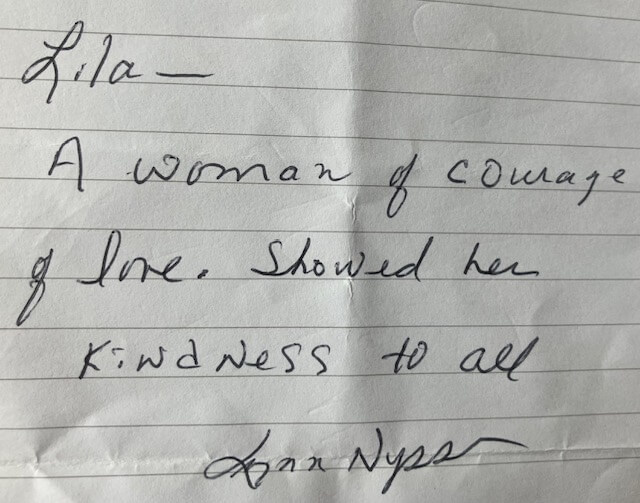 Lila —
A woman of courage
of love. Showed her
Kindness to all
Lynn Nyss